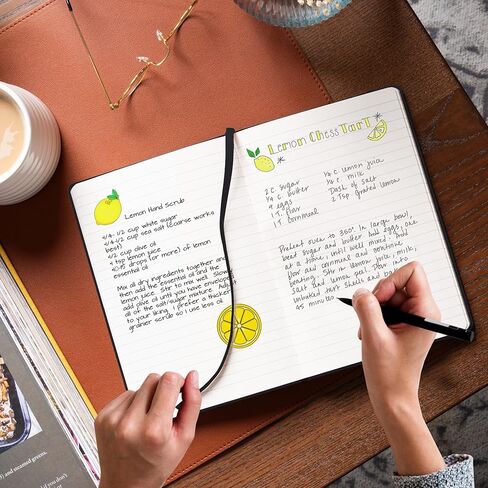 Lemon Hand Scrub
1/4-1/2 cup white sugar
1/4-1/2 cup sea salt (coarse works
best)
1/2 cup olive oil
4 tsp lemon juice
drops (or more) of lemon
essential oil
Mix all dry ingredients together and
then add the essential oil and the
lemon juice. Stir to mix well. Slowly
add olive oil until you have enveloped
all of the salt/sugar mixture. Adjust
to your liking. I prefer a thicker
grainer scrub so I use less oil.
Lemon Chess Tart
2 C. Sugar
1/2 C. butter
4 eggs
1 T. flour
1 T. Cornmeal
1/4 C. lemon juice
1/4 C. milk
Dash of salt
2 Tsp grated lemon
Preheat oven to 360°. In large bowl,
beat sugar and butter. Add eggs, one
at a time, until well mixed. Add
flour and cornmeal and continue
beating. Stir in lemon juice, milk,
salt and lemon peel.
unbaked tart shells and
45 minutes
) and steamed greens.
if you don't